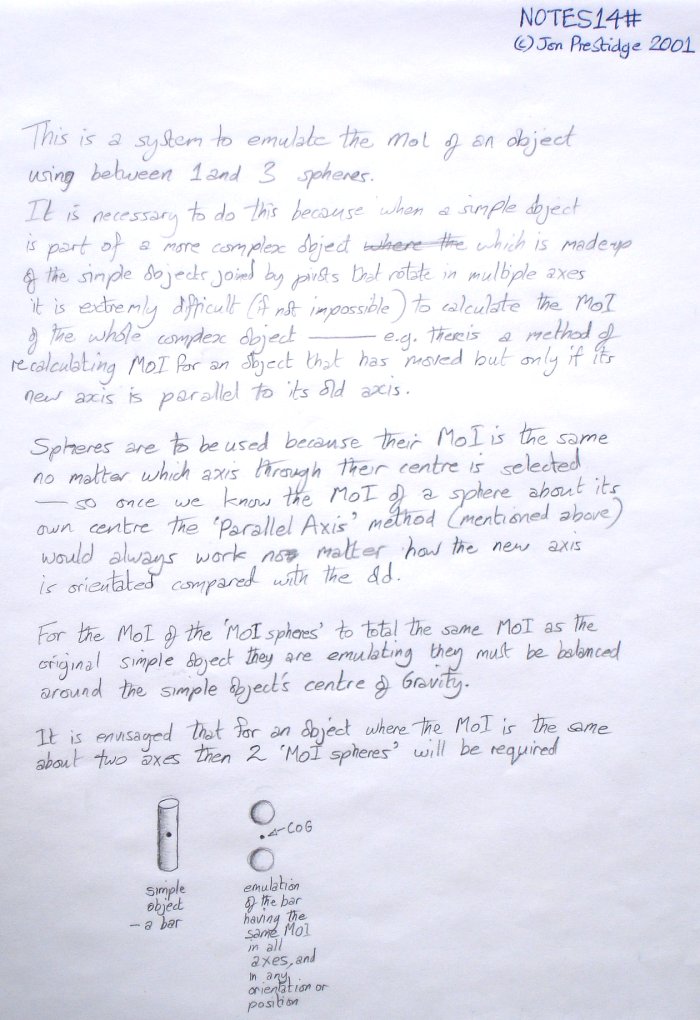 NOTES14#
(c) Jon Prestidge 2001
This is a system to emulate the MoI of an object
using between 1 and 3 spheres.
It is necessary to do this because when a simple object
is part of a more complex object where the which is made up
of the simple objects joined by pivots that rotate in multiple axes
it is extremly difficult (if not impossible) to calculate the MoI
of the whole complex object —— e.g. there is a method of
recalculating MoI for an object that has moved but only if its
new axis is parallel to its old axis.
Spheres are to be used because their MoI is the same
no matter which axis through their centre is selected
— so once we know the MoI of a sphere about its
own centre the 'Parallel Axis' method (mentioned above)
would always work no matter how the new axis
is orientated compared with the old.
For the MoI of the 'MoI spheres' to total the same MoI as the
original simple object they are emulating they must be balanced
around the simple object's centre of Gravity.
It is envisaged that for an object where the MoI is the same
about two axes then 2 'MoI spheres' will be required
CoG
simple
object
- a bar
emulation
of the bar
having the
same MoI
in all
axes, and
in any
orientation or
position